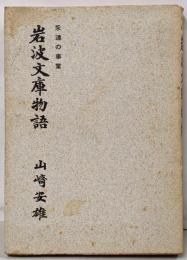 永遠の事業
岩波文庫物語
山崎安雄